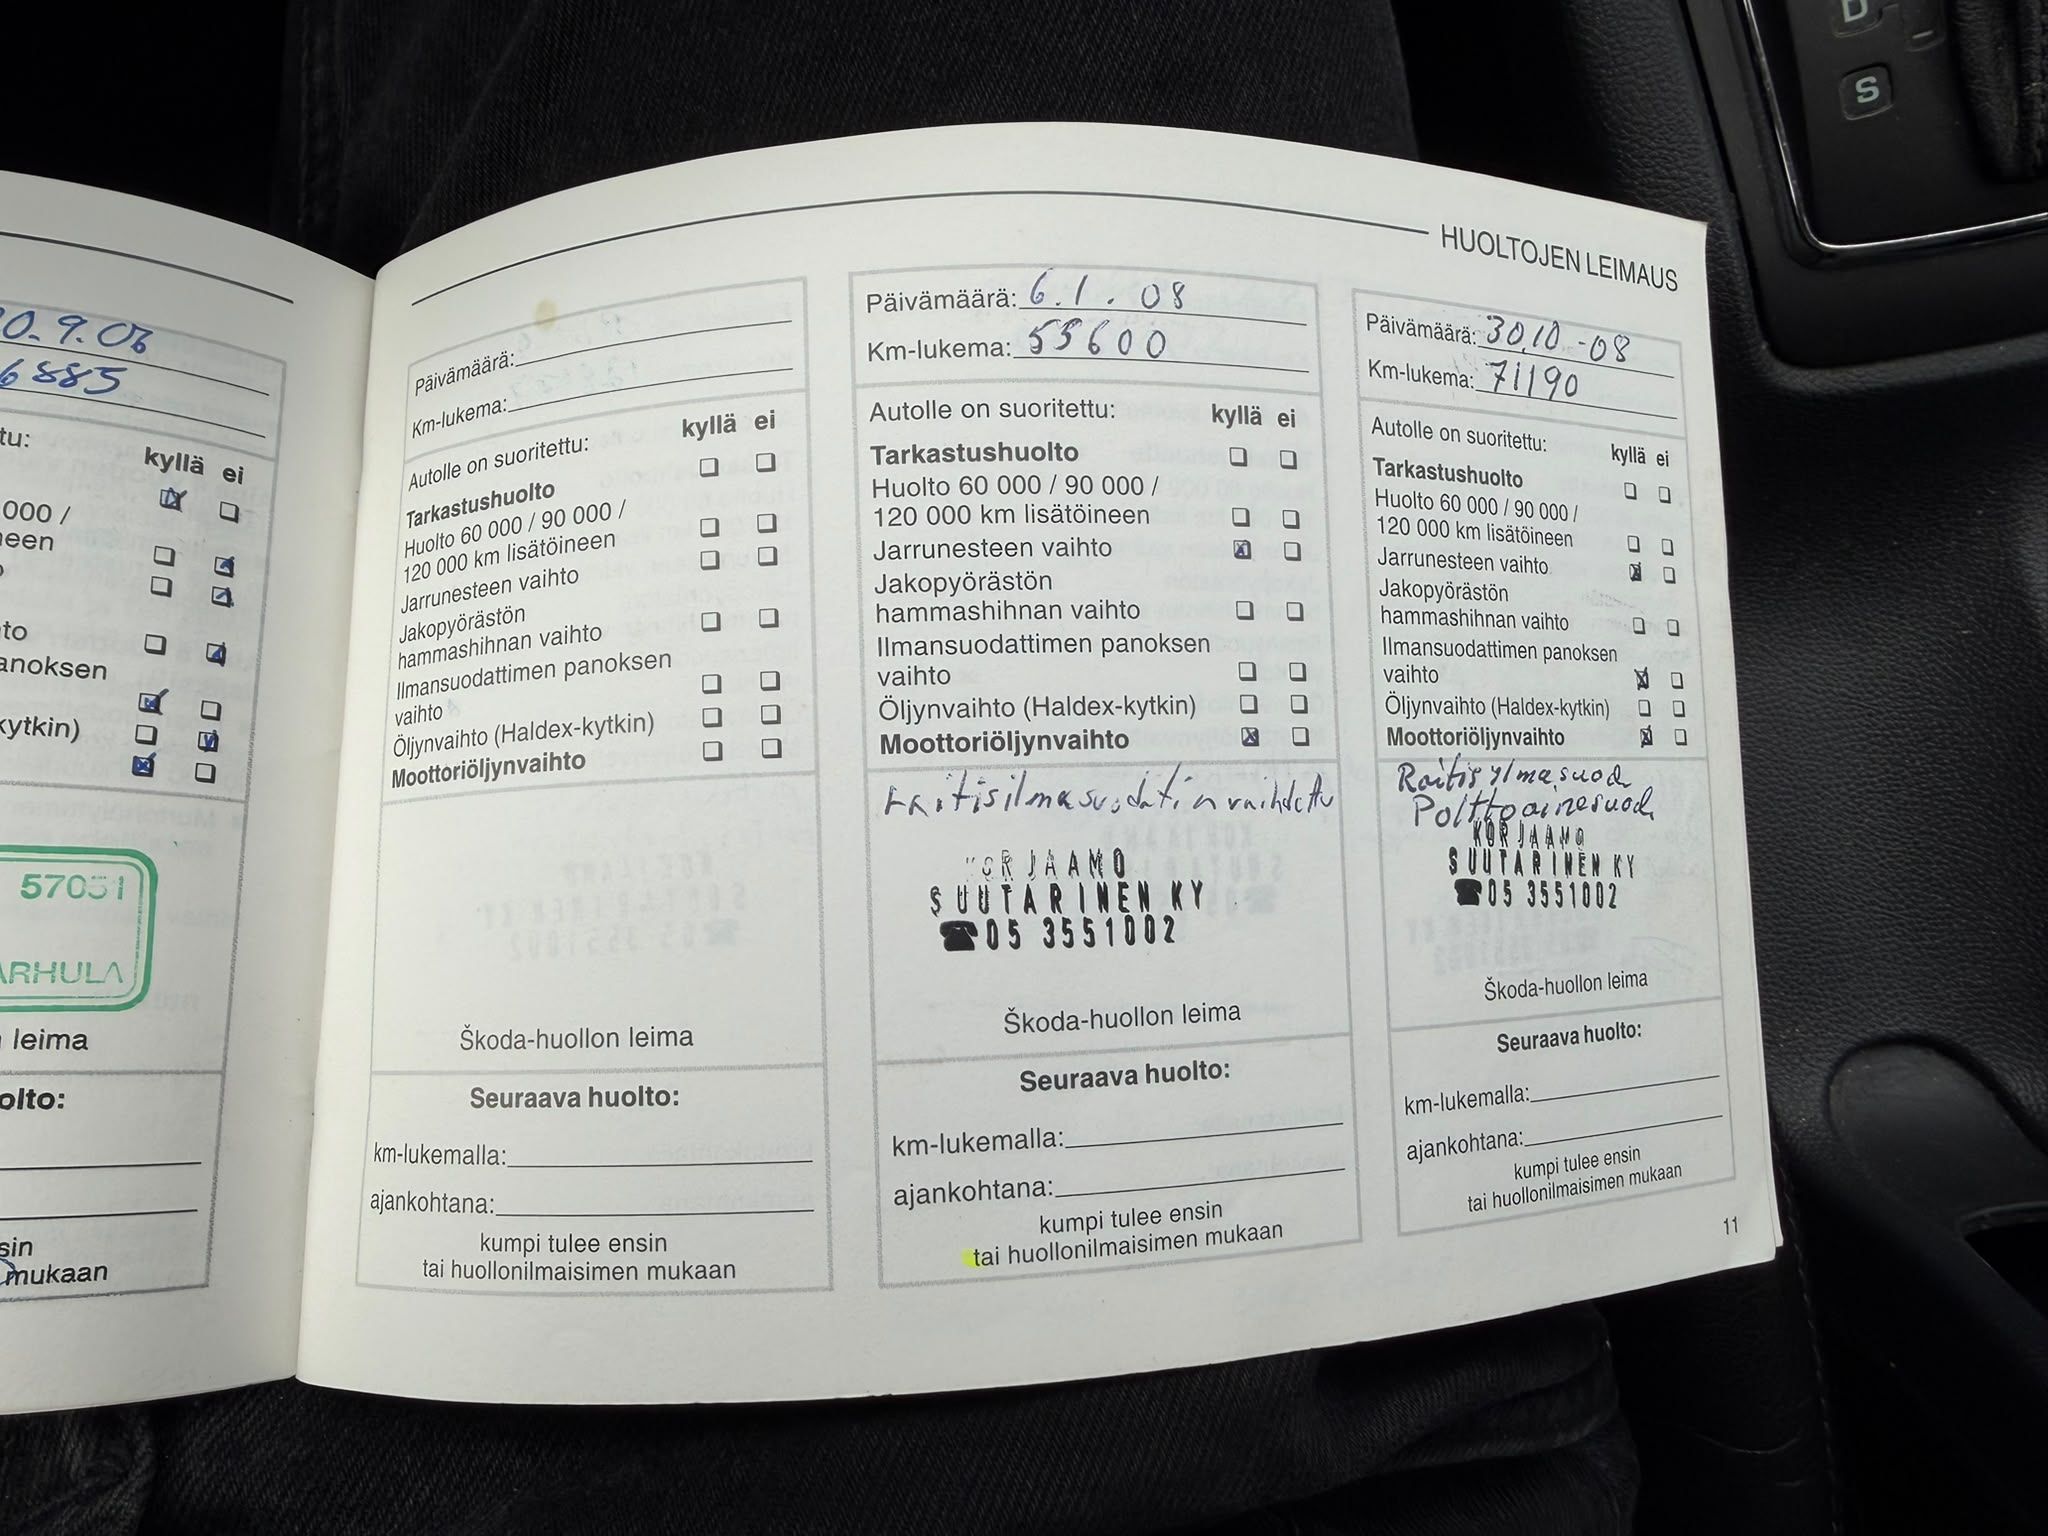 D
S
HUOLTOJEN LEIMAUS
0.9.06
6885
tu:
kyllä ei
000 /
neen
to
anoksen
kytkin)
57051
ARHULA
leima
olto:
sin
mukaan
Päivämäärä:
Km-lukema:
Autolle on suoritettu:
kyllä ei
Tarkastushuolto
Huolto 60 000 / 90 000 /
120 000 km lisätöineen
Jarrunesteen vaihto
Jakopyörästön
hammashihnan vaihto
Ilmansuodattimen panoksen
vaihto
Öljynvaihto (Haldex-kytkin)
Moottoriöljynvaihto
Škoda-huollon leima
Seuraava huolto:
km-lukemalla:
ajankohtana:
kumpi tulee ensin
tai huollonilmaisimen mukaan
Päivämäärä: 6.1.08
Km-lukema: 55600
Autolle on suoritettu: kyllä ei
Tarkastushuolto
Huolto 60 000 / 90 000 /
120 000 km lisätöineen
Jarrunesteen vaihto
Jakopyörästön
hammashihnan vaihto
Ilmansuodattimen panoksen
vaihto
Öljynvaihto (Haldex-kytkin)
Moottoriöljynvaihto
raitisilmasuodatin vaihdettu
KORJAAMO
SUUTARINEN KY
☎05 3551002
Škoda-huollon leima
Seuraava huolto:
km-lukemalla:
ajankohtana:
kumpi tulee ensin
tai huollonilmaisimen mukaan
Päivämäärä: 30.10-08
Km-lukema: 71190
Autolle on suoritettu:
kyllä ei
Tarkastushuolto
Huolto 60 000 / 90 000 /
120 000 km lisätöineen
Jarrunesteen vaihto
Jakopyörästön
hammashihnan vaihto
Ilmansuodattimen panoksen
vaihto
Öljynvaihto (Haldex-kytkin)
Moottoriöljynvaihto
Raitisylmasuod.
Polttoainesuod.
KORJAAMO
SUUTARINEN KY
☎05 3551002
Škoda-huollon leima
Seuraava huolto:
km-lukemalla:
ajankohtana:
kumpi tulee ensin
tai huollonilmaisimen mukaan
11